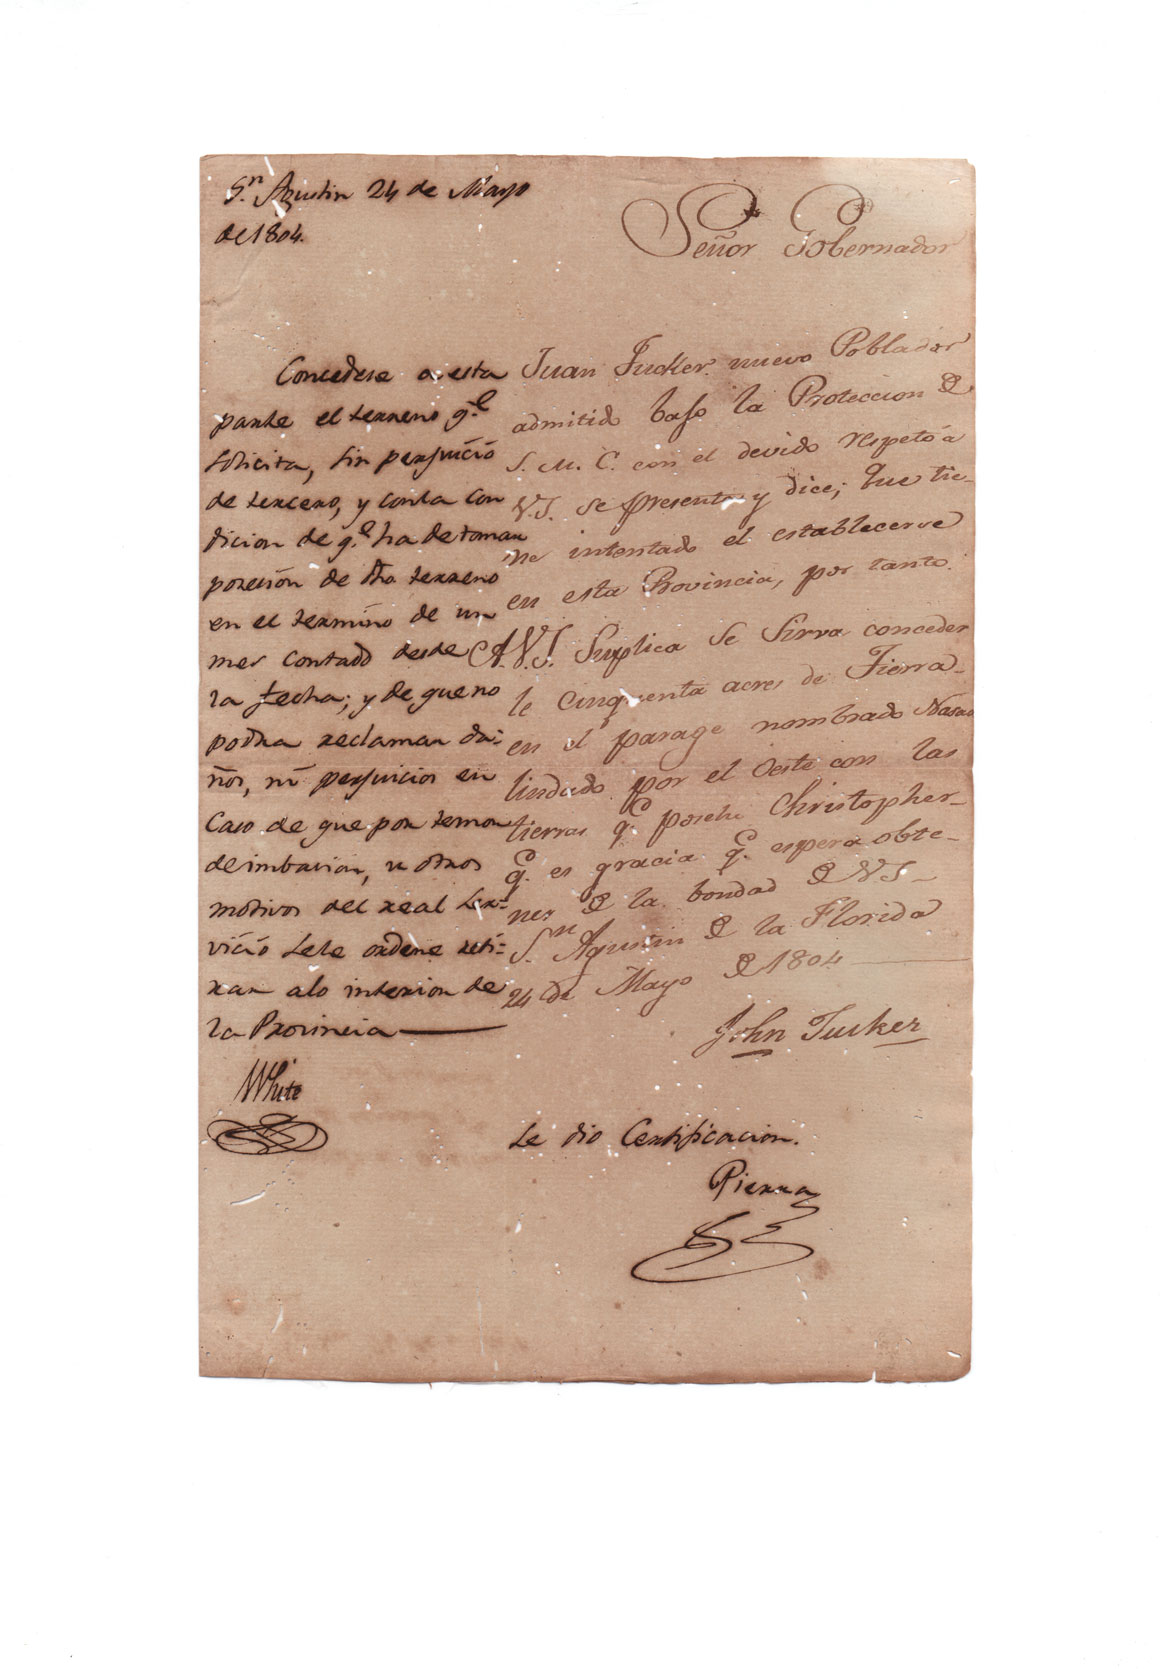 Sn. Agustin 24 de Mayo
de 1804.
Concedese a esta
parte el terreno q.e
solicita, sin perjuicio
de tercero, y con la con
dicion de q.e ha de tomar
posesión de dho terreno
en el termino de un
mes contado desde
la fecha; y de que no
podra reclamar da-
ños, ni perjuicios en
caso de que por temor
de imbacion, u otros
motivos del real ser-
vicio se le ordene reti-
rar a lo interior de
la Provincia
White
Señor Gobernador
Juan Tucker nuevo Poblador
admitido bajo la Proteccion de
S. M. C. con el devido respeto a
V.S. se presenta y dice; Que tie-
ne intentado el establecerse
en esta Provincia, por tanto.
A. V.S. Suplica se Sirva conceder
le cinquenta acres de Tierra
en el parage nombrado Nasau
lindado por el Oeste con las
tierras q.e poséhe Christopher
q.e es gracia q.e espera obte-
ner de la bondad de VS
Sn. Agustin de la Florida
24 de Mayo de 1804
John Tucker
Se dio Certificacion.
Pierra